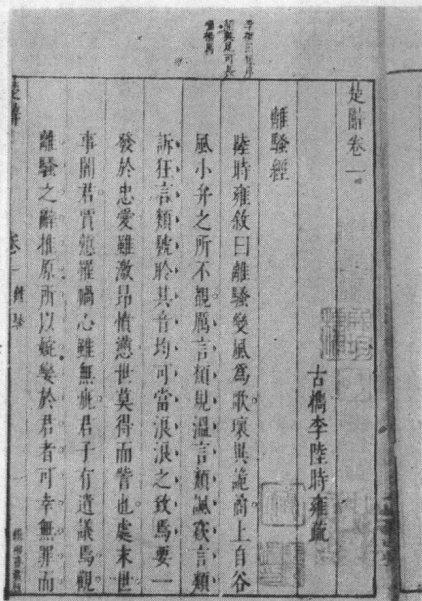 楚辭卷一
古檇李陸時雍疏
離騷經
陸時雍敘曰離騷變風為歌壞與詭矞上自谷
風小弁之所不覩厲言類規溫言類諷窽言類
訴狂言類號聆其音均可當浪浪之致焉要一
發於忠愛雖激昂憤懣世莫得而訾也處末世
事闇君買憝罹禍心雖無疵君子有遺議焉觀
離騷之辭推原所以婉孌於君者可幸無罪而
楚辭
卷一
離騷